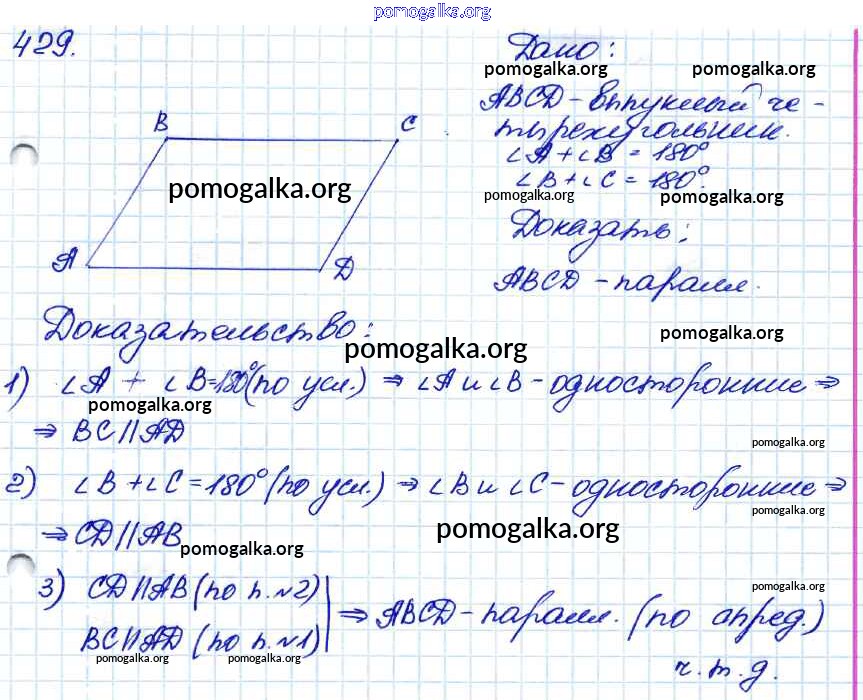 pomogalka.org
429.
Дано:
pomogalka.org pomogalka.org
ABCD - выпуклый че-
тырехугольник.
∠A + ∠B = 180°
∠B + ∠C = 180°.
pomogalka.org pomogalka.org
B C
pomogalka.org
A D
Доказать:
ABCD - паралл.
pomogalka.org
Доказательство:
pomogalka.org
1) ∠A + ∠B = 180° (по усл.) ⇒ ∠A и ∠B - односторонние ⇒
pomogalka.org
⇒ BC || AD
pomogalka.org
2) ∠B + ∠C = 180° (по усл.) ⇒ ∠B и ∠C - односторонние ⇒
pomogalka.org
⇒ CD || AB
pomogalka.org pomogalka.org
3) CD || AB (по п. №2)
pomogalka.org
BC || AD (по п. №1)
⇒ ABCD - паралл. (по опред.)
pomogalka.org pomogalka.org
ч. т. д.